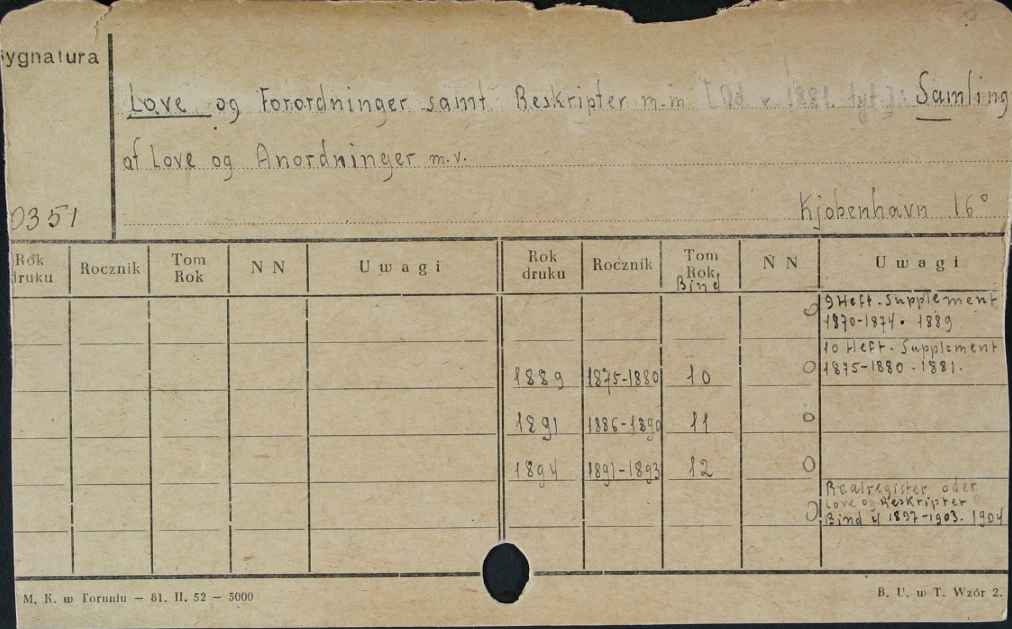 ygnatura
Love og Forordninger samt Reskripter m.m [Od r. 1881 tyt.]: Samling
af Love og Anordninger m.v.
0351
Kjobenhavn 16°
Rok druku Rocznik Tom Rok N N Uwagi Rok druku Rocznik Tom Rok Bind N N Uwagi
0 9 Heft. Supplement
1870-1874. 1889
10 Heft. Supplement
1889 1875-1880 10 0 1875-1880. 1881.
1891 1886-1890 11 0
1894 1891-1893 12 0
Realregister oder
Love og Reskripter
0 Bind 1897-1903. 1904
M. K. w Toruniu — 81. II. 52 — 5000
B. U. w T. Wzór 2.